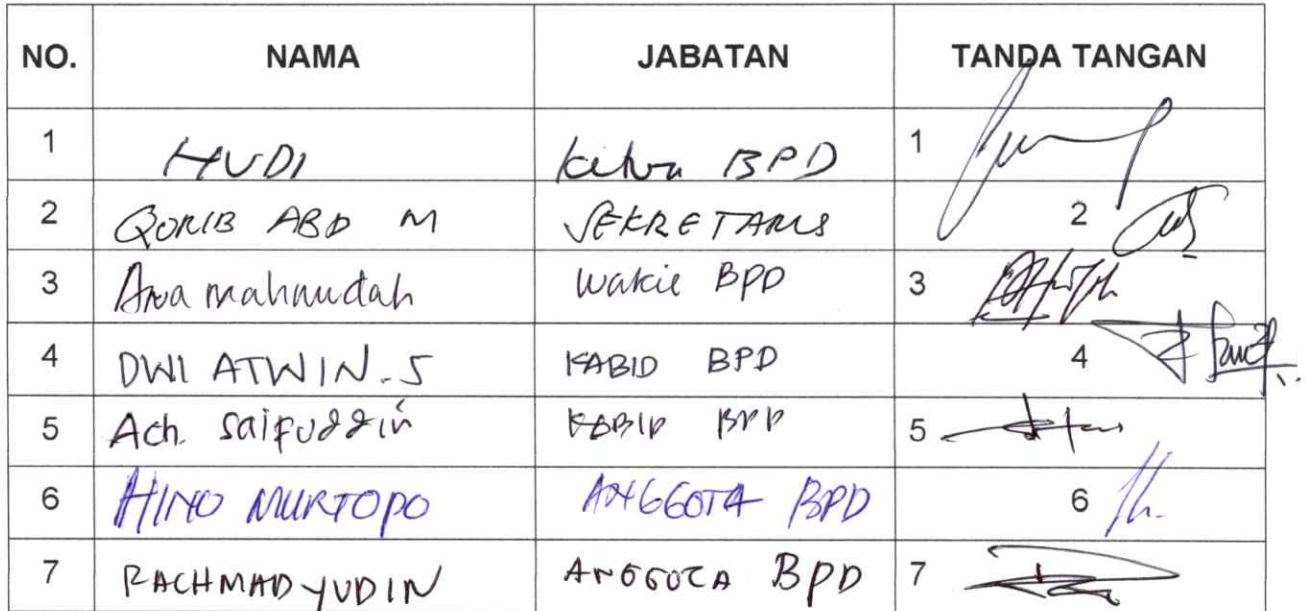 NO. NAMA JABATAN TANDA TANGAN
1 HUDI Ketua BPD 1
2 QORIB ABD M SEKRETARIS 2
3 Ana mahmudah Wakil BPD 3
4 DWI ATWIN.S KABID BPD 4
5 Ach. Saifuddin KABID BPD 5
6 HINO MURTOPO ANGGOTA BPD 6
7 RACHMAD YUDIN ANGGOTA BPD 7